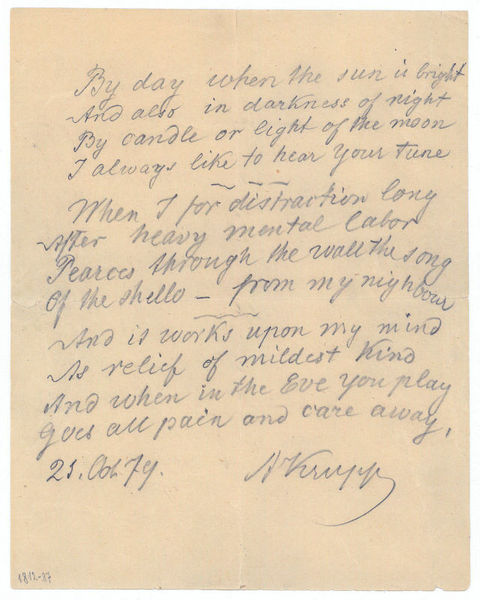 By day when the sun is bright
And also in darkness of night
By candle or light of the moon
I always like to hear Your Tune
When I for distraction long
After heavy mental labor
Pearces through the wall the song
Of the shello – from my nighbour
And it works upon my mind
As relief of mildest Kind
And when in the Eve you play
Goes all pain and care away,
21. Oct. 79. A Krupp
1812-87